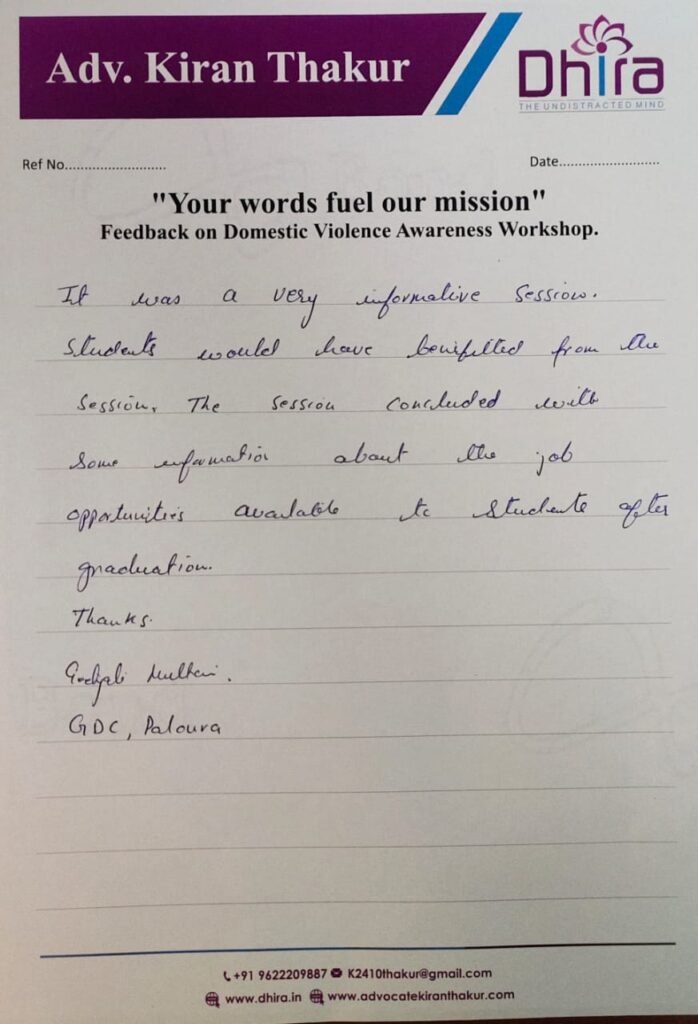 Adv. Kiran Thakur
Dhira
THE UNDISTRACTED MIND
Ref No..........................
Date..........................
"Your words fuel our mission"
Feedback on Domestic Violence Awareness Workshop.
It was a very informative session.
Students would have benifitted from the
session. The session concluded with
some information about the job
opportunities available to students after
graduation.
Thanks.
GDC, Paloura
+91 9622209887 K2410thakur@gmail.com
www.dhira.in www.advocatekiranthakur.com